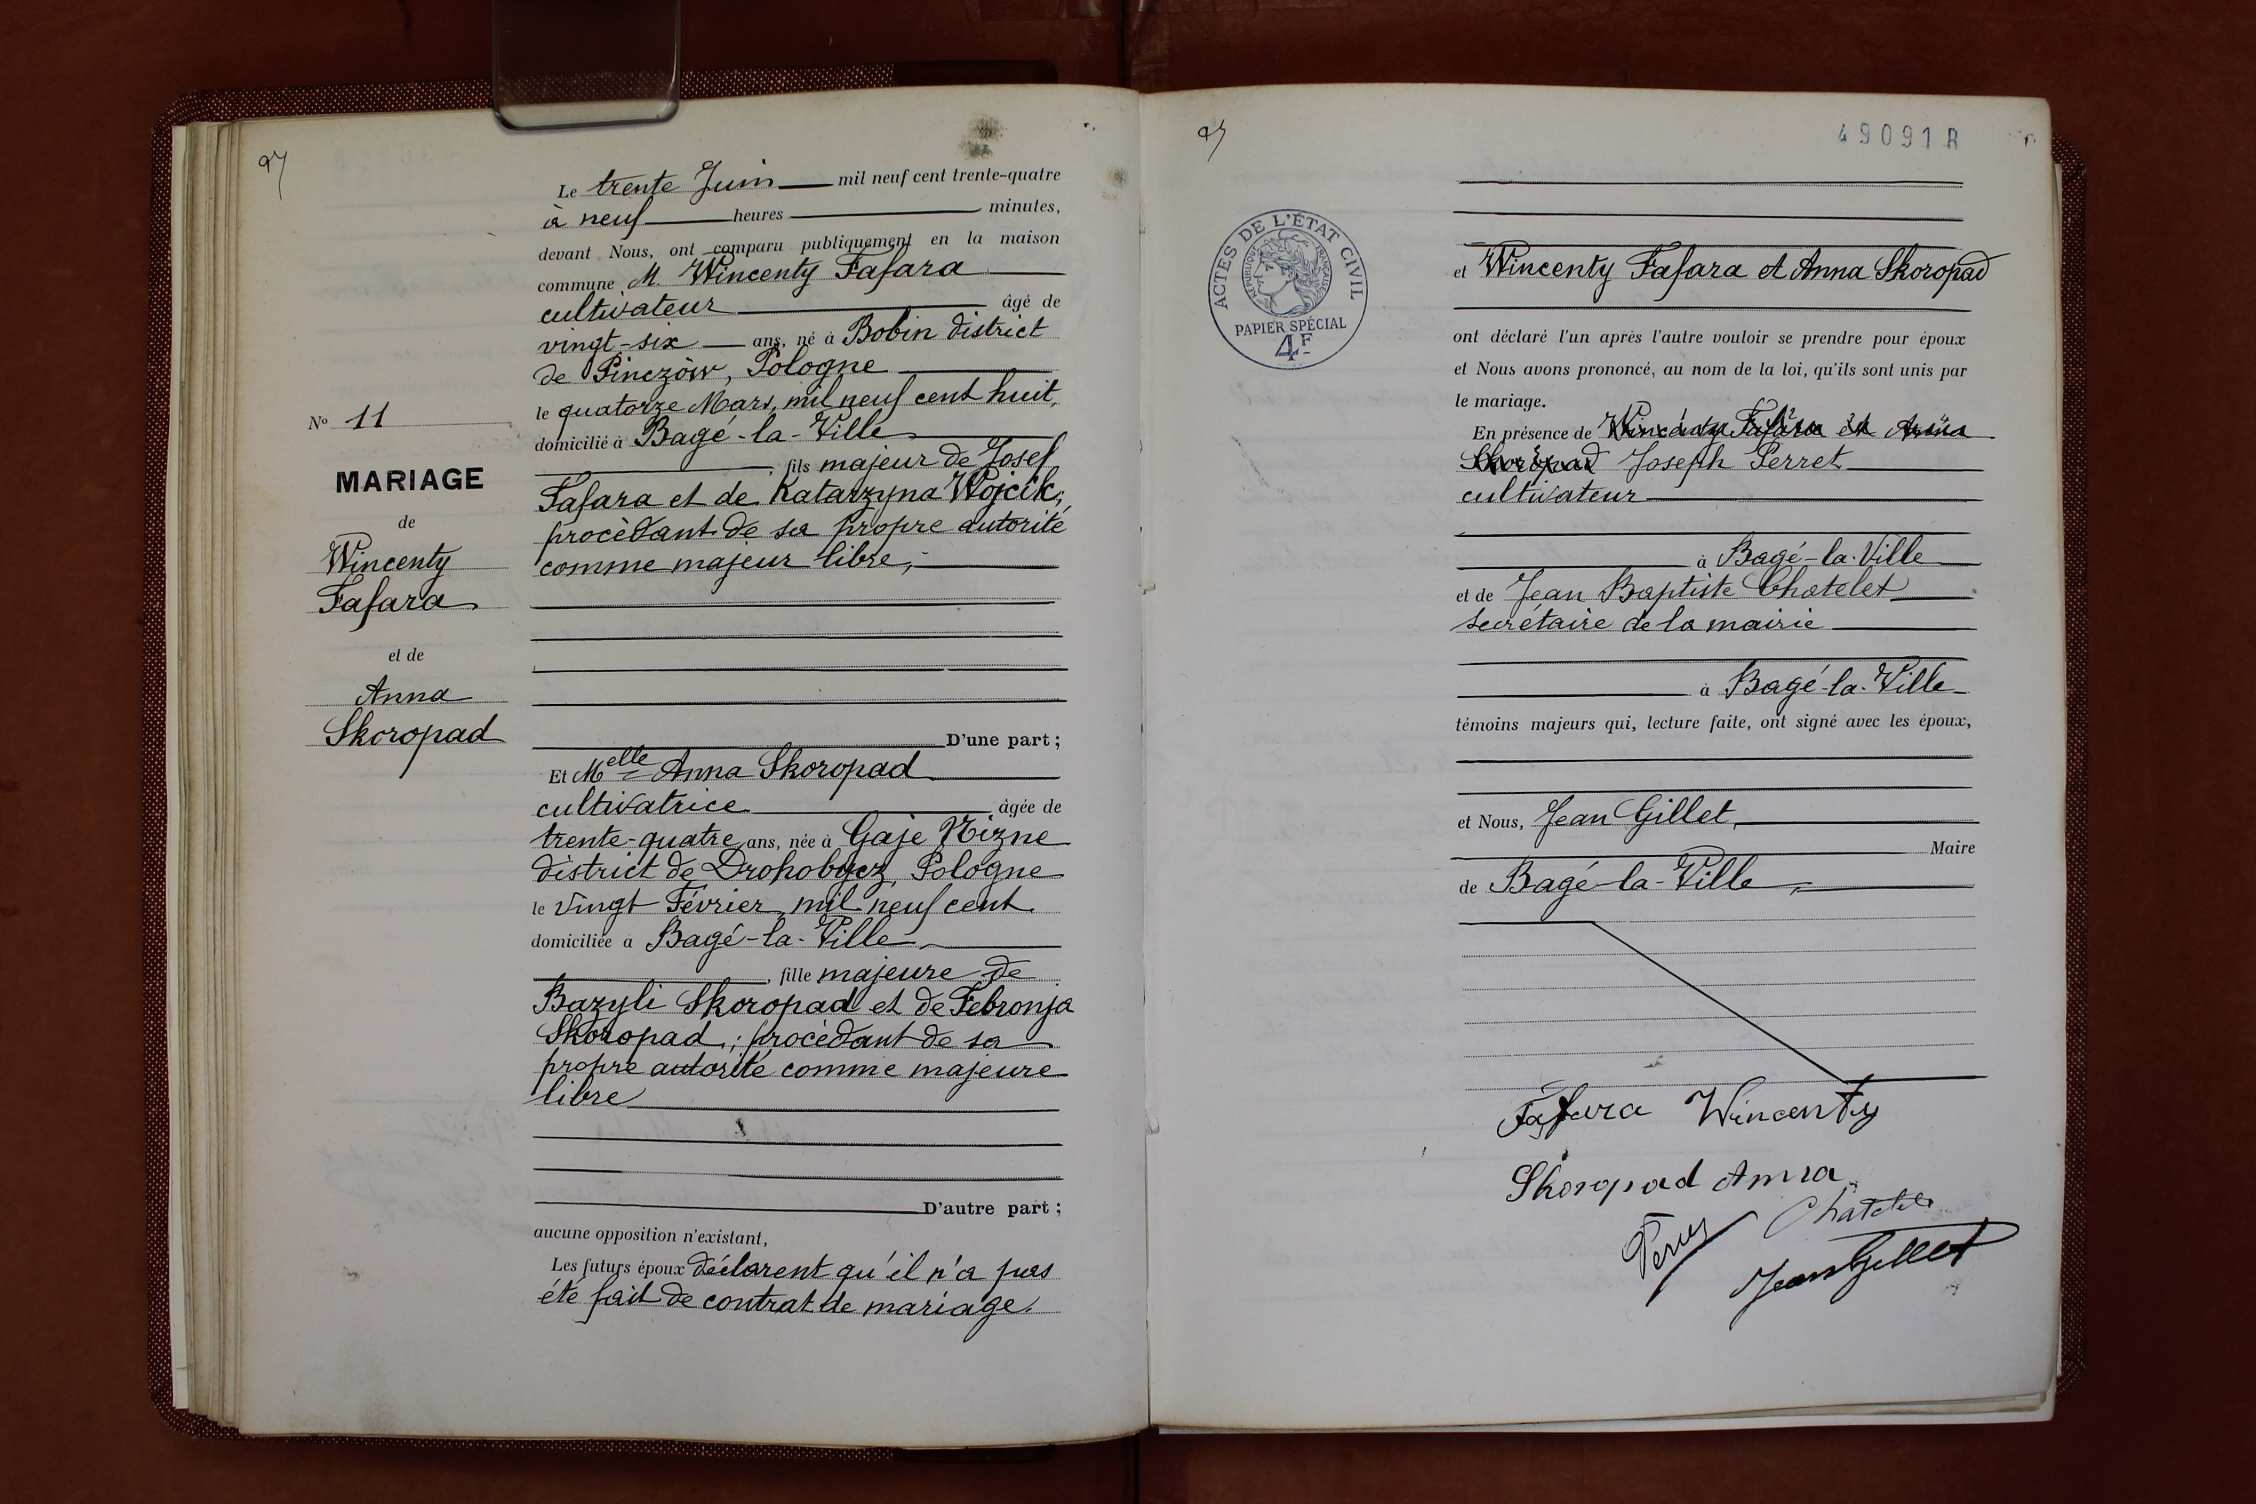 97
Le trente Juin mil neuf cent trente-quatre
à neuf heures minutes,
devant Nous, ont comparu publiquement en la maison
commune M. Wincenty Fafara
cultivateur âgé de
vingt-six ans, né à Bobin district
de Pinczòw, Pologne
le quatorze Mars, mil neuf cent huit,
domicilié à Bagé-la-Ville
, fils majeur de Josef
Fafara et de Katarzyna Wojcik;
procèdant de sa propre autorité
comme majeur libre;
D'une part;
Nº 11
MARIAGE
de
Wincenty
Fafara
et de
Anna
Skoropad
Et Melle Anna Skoropad
cultivatrice âgée de
trente-quatre ans, née à Gaje Nizne
district de Drohobycz, Pologne
le vingt Février, mil neuf cent
domiciliée à Bagé-la-Ville
, fille majeure de
Bazyli Skoropad et de Febronja
Skoropad; procèdant de sa
propre autorité comme majeure
libre
D'autre part;
aucune opposition n'existant,
Les futurs époux déclarent qu'il n'a pas
été fait de contrat de mariage.
97
49091 R
ACTES DE L'ÉTAT CIVIL
RÉPUBLIQUE FRANÇAISE
PAPIER SPÉCIAL
4F
et Wincenty Fafara et Anna Skoropad
ont déclaré l'un après l'autre vouloir se prendre pour époux
et Nous avons prononcé, au nom de la loi, qu'ils sont unis par
le mariage.
En présence de Wincenty Fafara et Anna
Skoropad Joseph Perret
cultivateur
à Bagé-la-Ville
et de Jean Baptiste Chatelet
secrétaire de la mairie
à Bagé-la-Ville
témoins majeurs qui, lecture faite, ont signé avec les époux,
et Nous, Jean Gillet,
Maire
de Bagé-la-Ville,
Fafara Wincenty
Skoropad Anna
Chatelet
Perret
Jean Gillet